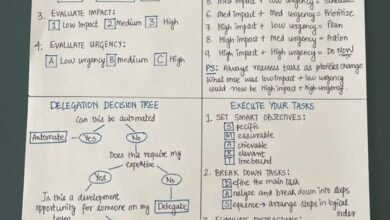 3. EVALUATE IMPACT:
1 Low Impact 2 Medium 3 High
4. EVALUATE URGENCY:
A Low urgency B Medium C High
6. Med impact + Med urgency = Prioritize
7. High impact + Low urgency = Plan
8. High impact + Med urgency = Action
9. High impact + High urgency = Do NOW
PS: Always reassess tasks as priorities change
What once was low impact + low urgency
could now be high impact + high urgency.
DELEGATION DECISION TREE
Can this be automated
Yes
No
Automate
Does this require my
expertise
Yes
No
Is this a development
Delegate
opportunity for someone on my
EXECUTE YOUR TASKS
1. SET SMART OBJECTIVES:
Specific
Measurable
Achievable
Relevant
Timebound
2. BREAK DOWN TASKS:
Define the main task
Analyze and break down into steps
Sequence → arrange steps in logical
order